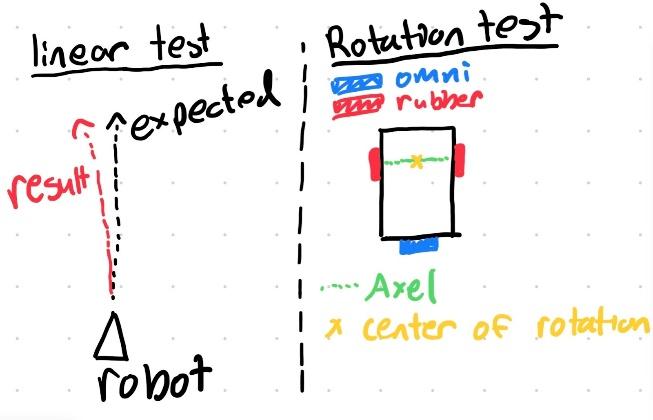 linear test
expected
result
robot
Rotation test
omni
rubber
Axel
x center of rotation